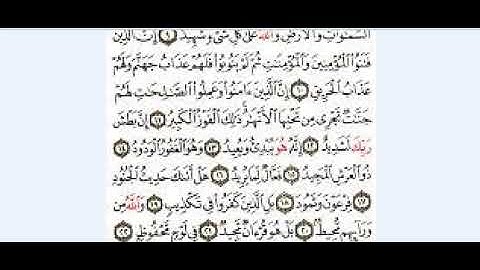 السَّمَٰوَٰتِ وَالْأَرْضِ وَاللَّهُ عَلَىٰ كُلِّ شَىْءٍ شَهِيدٌ ۝٩ إِنَّ الَّذِينَ
فَتَنُوا الْمُؤْمِنِينَ وَالْمُؤْمِنَٰتِ ثُمَّ لَمْ يَتُوبُوا فَلَهُمْ عَذَابُ جَهَنَّمَ وَلَهُمْ
عَذَابُ الْحَرِيقِ ۝١٠ إِنَّ الَّذِينَ ءَامَنُوا وَعَمِلُوا الصَّٰلِحَٰتِ لَهُمْ
جَنَّٰتٌ تَجْرِى مِن تَحْتِهَا الْأَنْهَٰرُ ذَٰلِكَ الْفَوْزُ الْكَبِيرُ ۝١١ إِنَّ بَطْشَ
رَبِّكَ لَشَدِيدٌ ۝١٢ إِنَّهُ هُوَ يُبْدِئُ وَيُعِيدُ ۝١٣ وَهُوَ الْغَفُورُ الْوَدُودُ ۝١٤
ذُو الْعَرْشِ الْمَجِيدُ ۝١٥ فَعَّالٌ لِّمَا يُرِيدُ ۝١٦ هَلْ أَتَىٰكَ حَدِيثُ الْجُنُودِ
۝١٧ فِرْعَوْنَ وَثَمُودَ ۝١٨ بَلِ الَّذِينَ كَفَرُوا فِى تَكْذِيبٍ ۝١٩ وَاللَّهُ مِن
وَرَآئِهِم مُّحِيطٌ ۝٢٠ بَلْ هُوَ قُرْءَانٌ مَّجِيدٌ ۝٢١ فِى لَوْحٍ مَّحْفُوظٍ ۝٢٢